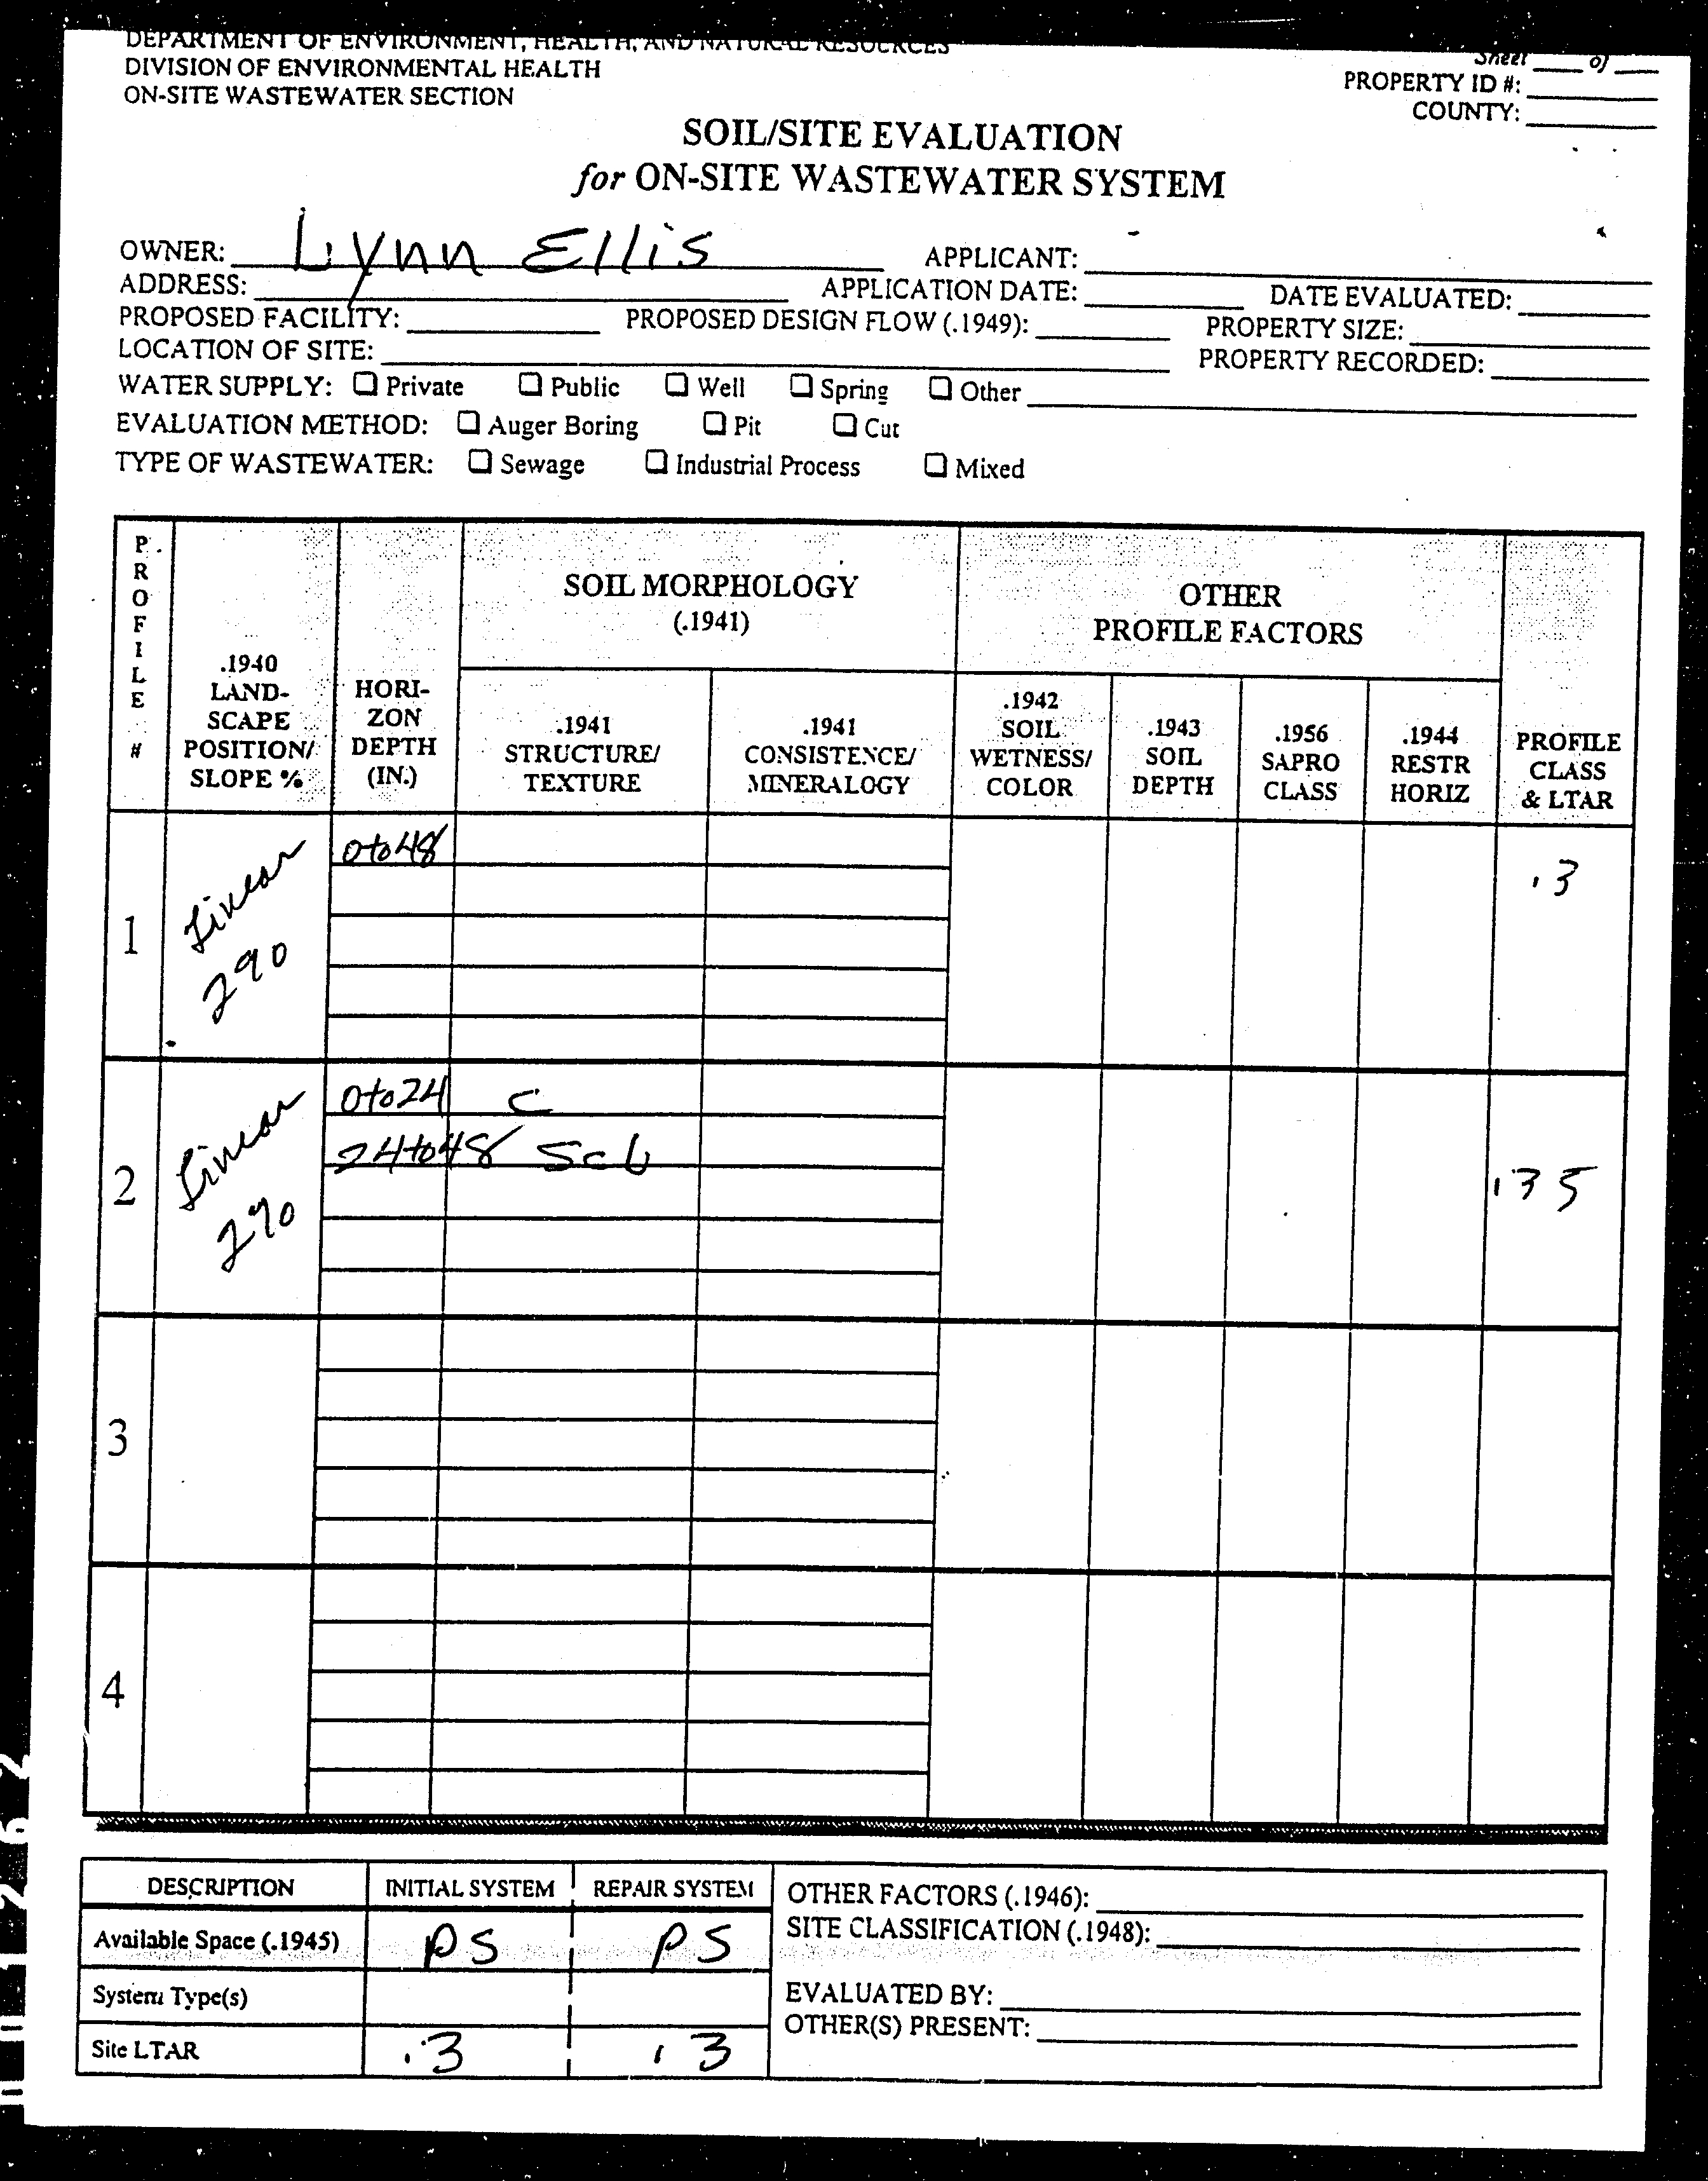 DEPARTMENT OF ENVIRONMENT, HEALTH, AND NATURAL RESOURCES
DIVISION OF ENVIRONMENTAL HEALTH
ON-SITE WASTEWATER SECTION
Sheet ____ of ____
PROPERTY ID #:
COUNTY:
SOIL/SITE EVALUATION
for ON-SITE WASTEWATER SYSTEM
OWNER: Lynn Ellis APPLICANT:
ADDRESS: APPLICATION DATE: DATE EVALUATED:
PROPOSED FACILITY: PROPOSED DESIGN FLOW (.1949): PROPERTY SIZE:
LOCATION OF SITE: PROPERTY RECORDED:
WATER SUPPLY: ☐ Private ☐ Public ☐ Well ☐ Spring ☐ Other
EVALUATION METHOD: ☐ Auger Boring ☐ Pit ☐ Cut
TYPE OF WASTEWATER: ☐ Sewage ☐ Industrial Process ☐ Mixed
PROFILE #
.1940 LAND-SCAPE POSITION/ SLOPE %
HORI-ZON DEPTH (IN.)
SOIL MORPHOLOGY
(.1941)
.1941 STRUCTURE/ TEXTURE
.1941 CONSISTENCE/ MINERALOGY
OTHER
PROFILE FACTORS
.1942 SOIL WETNESS/ COLOR
.1943 SOIL DEPTH
.1956 SAPRO CLASS
.1944 RESTR HORIZ
PROFILE CLASS & LTAR
1 Linear 2% 0to48 .3
2 Linear 2% 0to24 C .35
24to48 ScL
3
4
DESCRIPTION INITIAL SYSTEM REPAIR SYSTEM
Available Space (.1945) PS PS
System Type(s)
Site LTAR .3 .3
OTHER FACTORS (.1946):
SITE CLASSIFICATION (.1948):
EVALUATED BY:
OTHER(S) PRESENT: